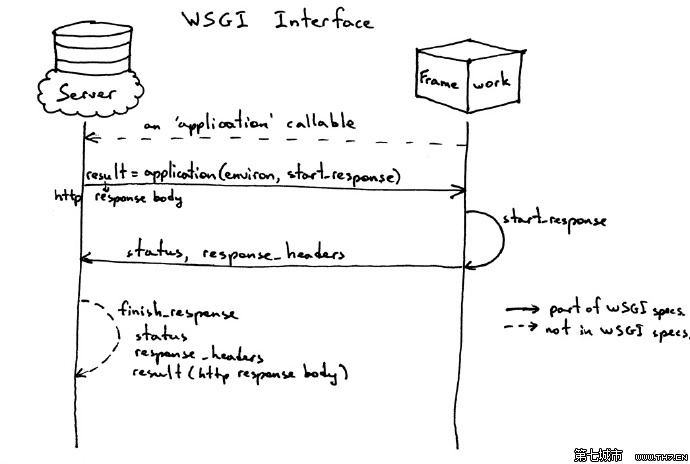 WSGI Interface
Server
Frame work
an 'application' callable
result = application(environ, start_response)
http response body
start_response
status, response_headers
finish_response
status
response_headers
result (http response body)
part of WSGI specs.
not in WSGI specs.
第七城市 WWW.TH7.CN